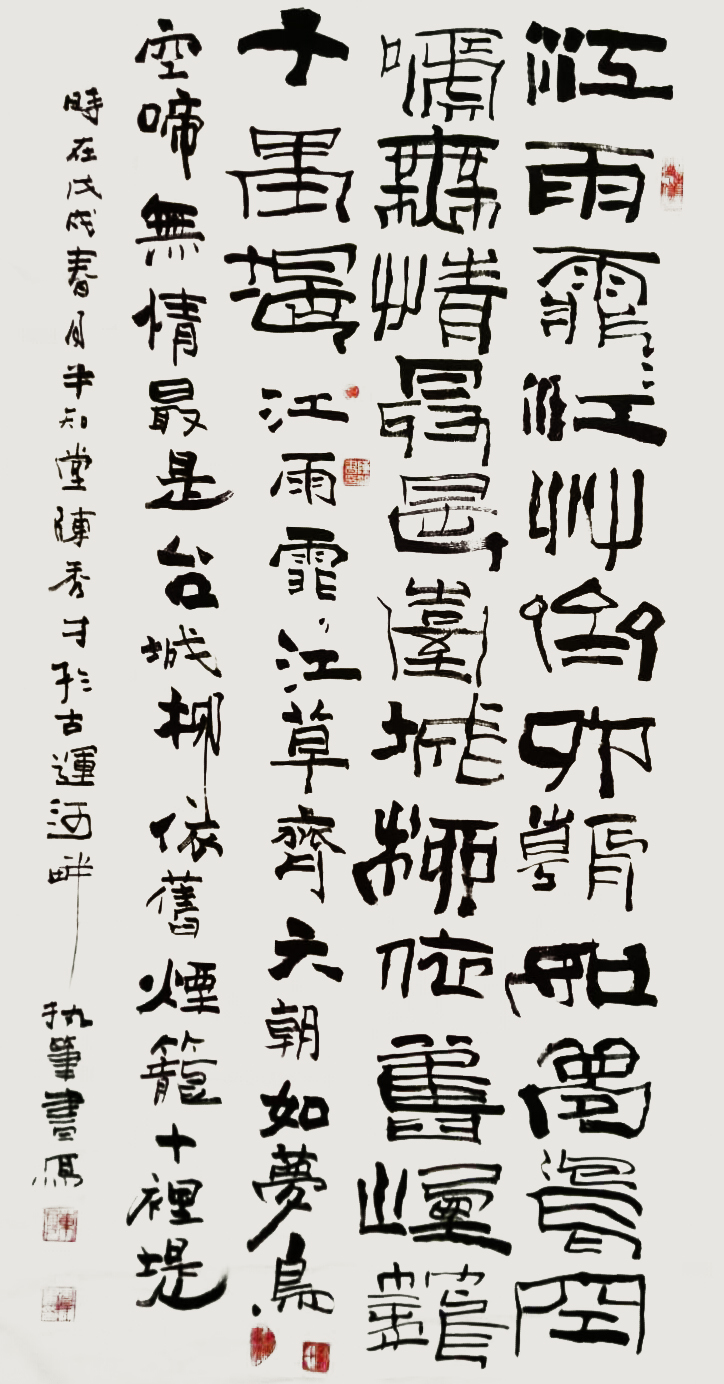 江雨霏〻江艸齊六朝如夢鳥空
啼無情最是臺城柳依舊煙籠
十里堤 江雨霏〻江草齊六朝如夢鳥
空啼無情最是台城柳依舊煙籠十裡堤
時在戊戌春月半知堂陳秀才於古運河畔 執筆書寫